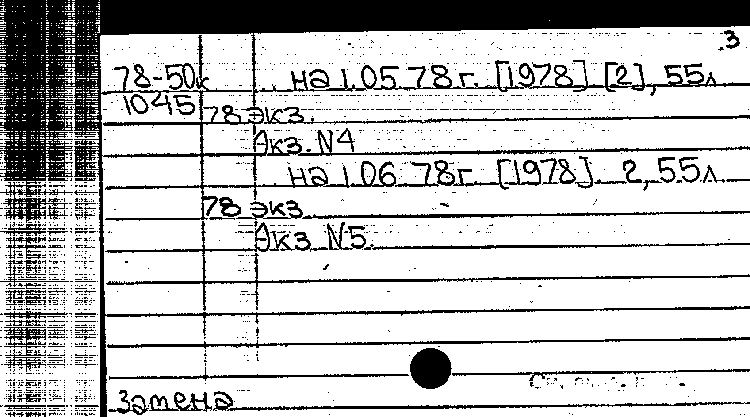 3
78-50к ... на 1.05.78 г. [1978] [2], 55 л
1045 78 экз.
Экз. N4
на 1.06.78 г. [1978]. 2, 55 л.
78 экз
Экз N5.
См.
Замена